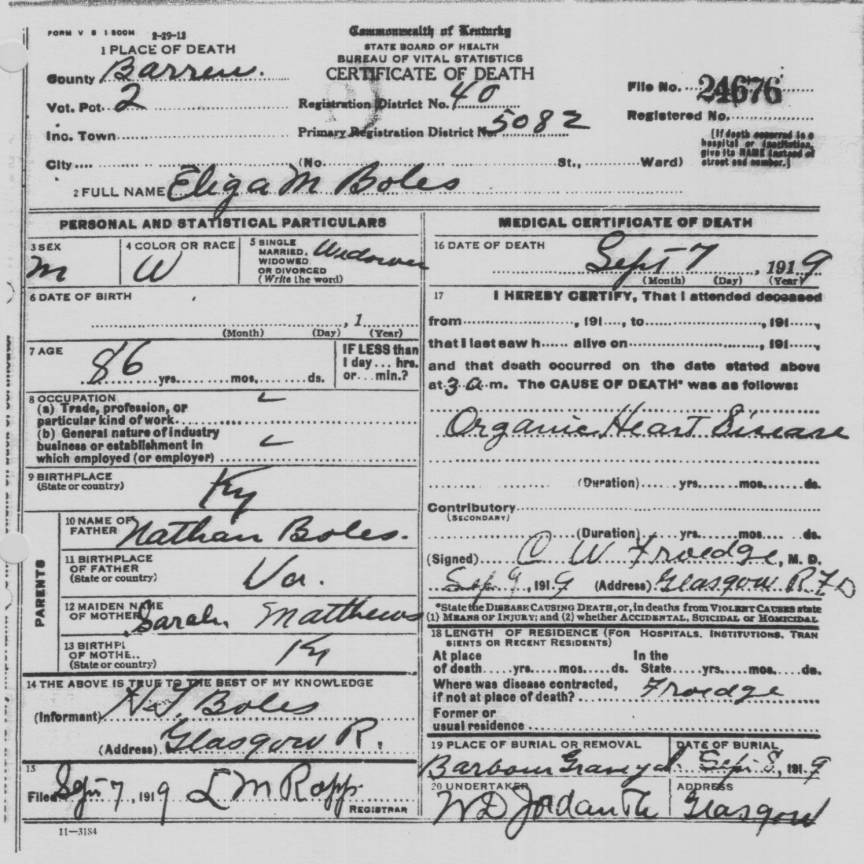 FORM V S 1 500M 2-29-13
Commonwealth of Kentucky
STATE BOARD OF HEALTH
BUREAU OF VITAL STATISTICS
CERTIFICATE OF DEATH
1 PLACE OF DEATH
County Barren.
Vot. Pct. 2
Inc. Town
City
Registration District No. 40
Primary Registration District No. 5082
(No. St., Ward)
File No. 24676
Registered No.
[If death occurred in a
hospital or institution,
give its NAME instead of
street and number.]
2 FULL NAME Eliga M Boles
PERSONAL AND STATISTICAL PARTICULARS
3 SEX
M
4 COLOR OR RACE
W
5 SINGLE
MARRIED,
WIDOWED
OR DIVORCED
(Write the word)
Widower
6 DATE OF BIRTH
, 1
(Month) (Day) (Year)
7 AGE
86 yrs. mos. ds.
IF LESS than
1 day ... hrs.
or ... min.?
8 OCCUPATION
(a) Trade, profession, or
particular kind of work
(b) General nature of industry
business or establishment in
which employed (or employer)
9 BIRTHPLACE
(State or country)
Ky
PARENTS
10 NAME OF
FATHER
Nathan Boles.
11 BIRTHPLACE
OF FATHER
(State or country)
Va.
12 MAIDEN NAME
OF MOTHER
Sarah Matthews
13 BIRTHPL
OF MOTHE..
(State or country)
Ky
14 THE ABOVE IS TRUE TO THE BEST OF MY KNOWLEDGE
(Informant) Boles
(Address) Glasgow R.
15
Filed Sep 7, 1919 Ropp
REGISTRAR
11—3184
MEDICAL CERTIFICATE OF DEATH
16 DATE OF DEATH
Sept 7, 1919
(Month) (Day) (Year)
17 I HEREBY CERTIFY, That I attended deceased
from , 191 , to , 191 ,
that I last saw h alive on , 191 ,
and that death occurred on the date stated above
at 3 a. m. The CAUSE OF DEATH* was as follows:
Organic Heart Disease
(Duration) yrs. mos. ds.
Contributory
(SECONDARY)
(Duration) yrs. mos. ds.
(Signed) C W Froedge, M. D.
Sep 9, 1919 (Address) Glasgow R.F.D
*State the DISEASE CAUSING DEATH, or, in deaths from VIOLENT CAUSES state
(1) MEANS OF INJURY; and (2) whether ACCIDENTAL, SUICIDAL or HOMICIDAL
18 LENGTH OF RESIDENCE (FOR HOSPITALS, INSTITUTIONS, TRAN
SIENTS OR RECENT RESIDENTS)
At place In the
of death yrs. mos. ds. State yrs. mos. ds.
Where was disease contracted,
if not at place of death? Froedge
Former or
usual residence
19 PLACE OF BURIAL OR REMOVAL
Barbour Graveyd.
DATE OF BURIAL
Sep. 8, 1919
20 UNDERTAKER
W D Jordan
ADDRESS
Glasgow